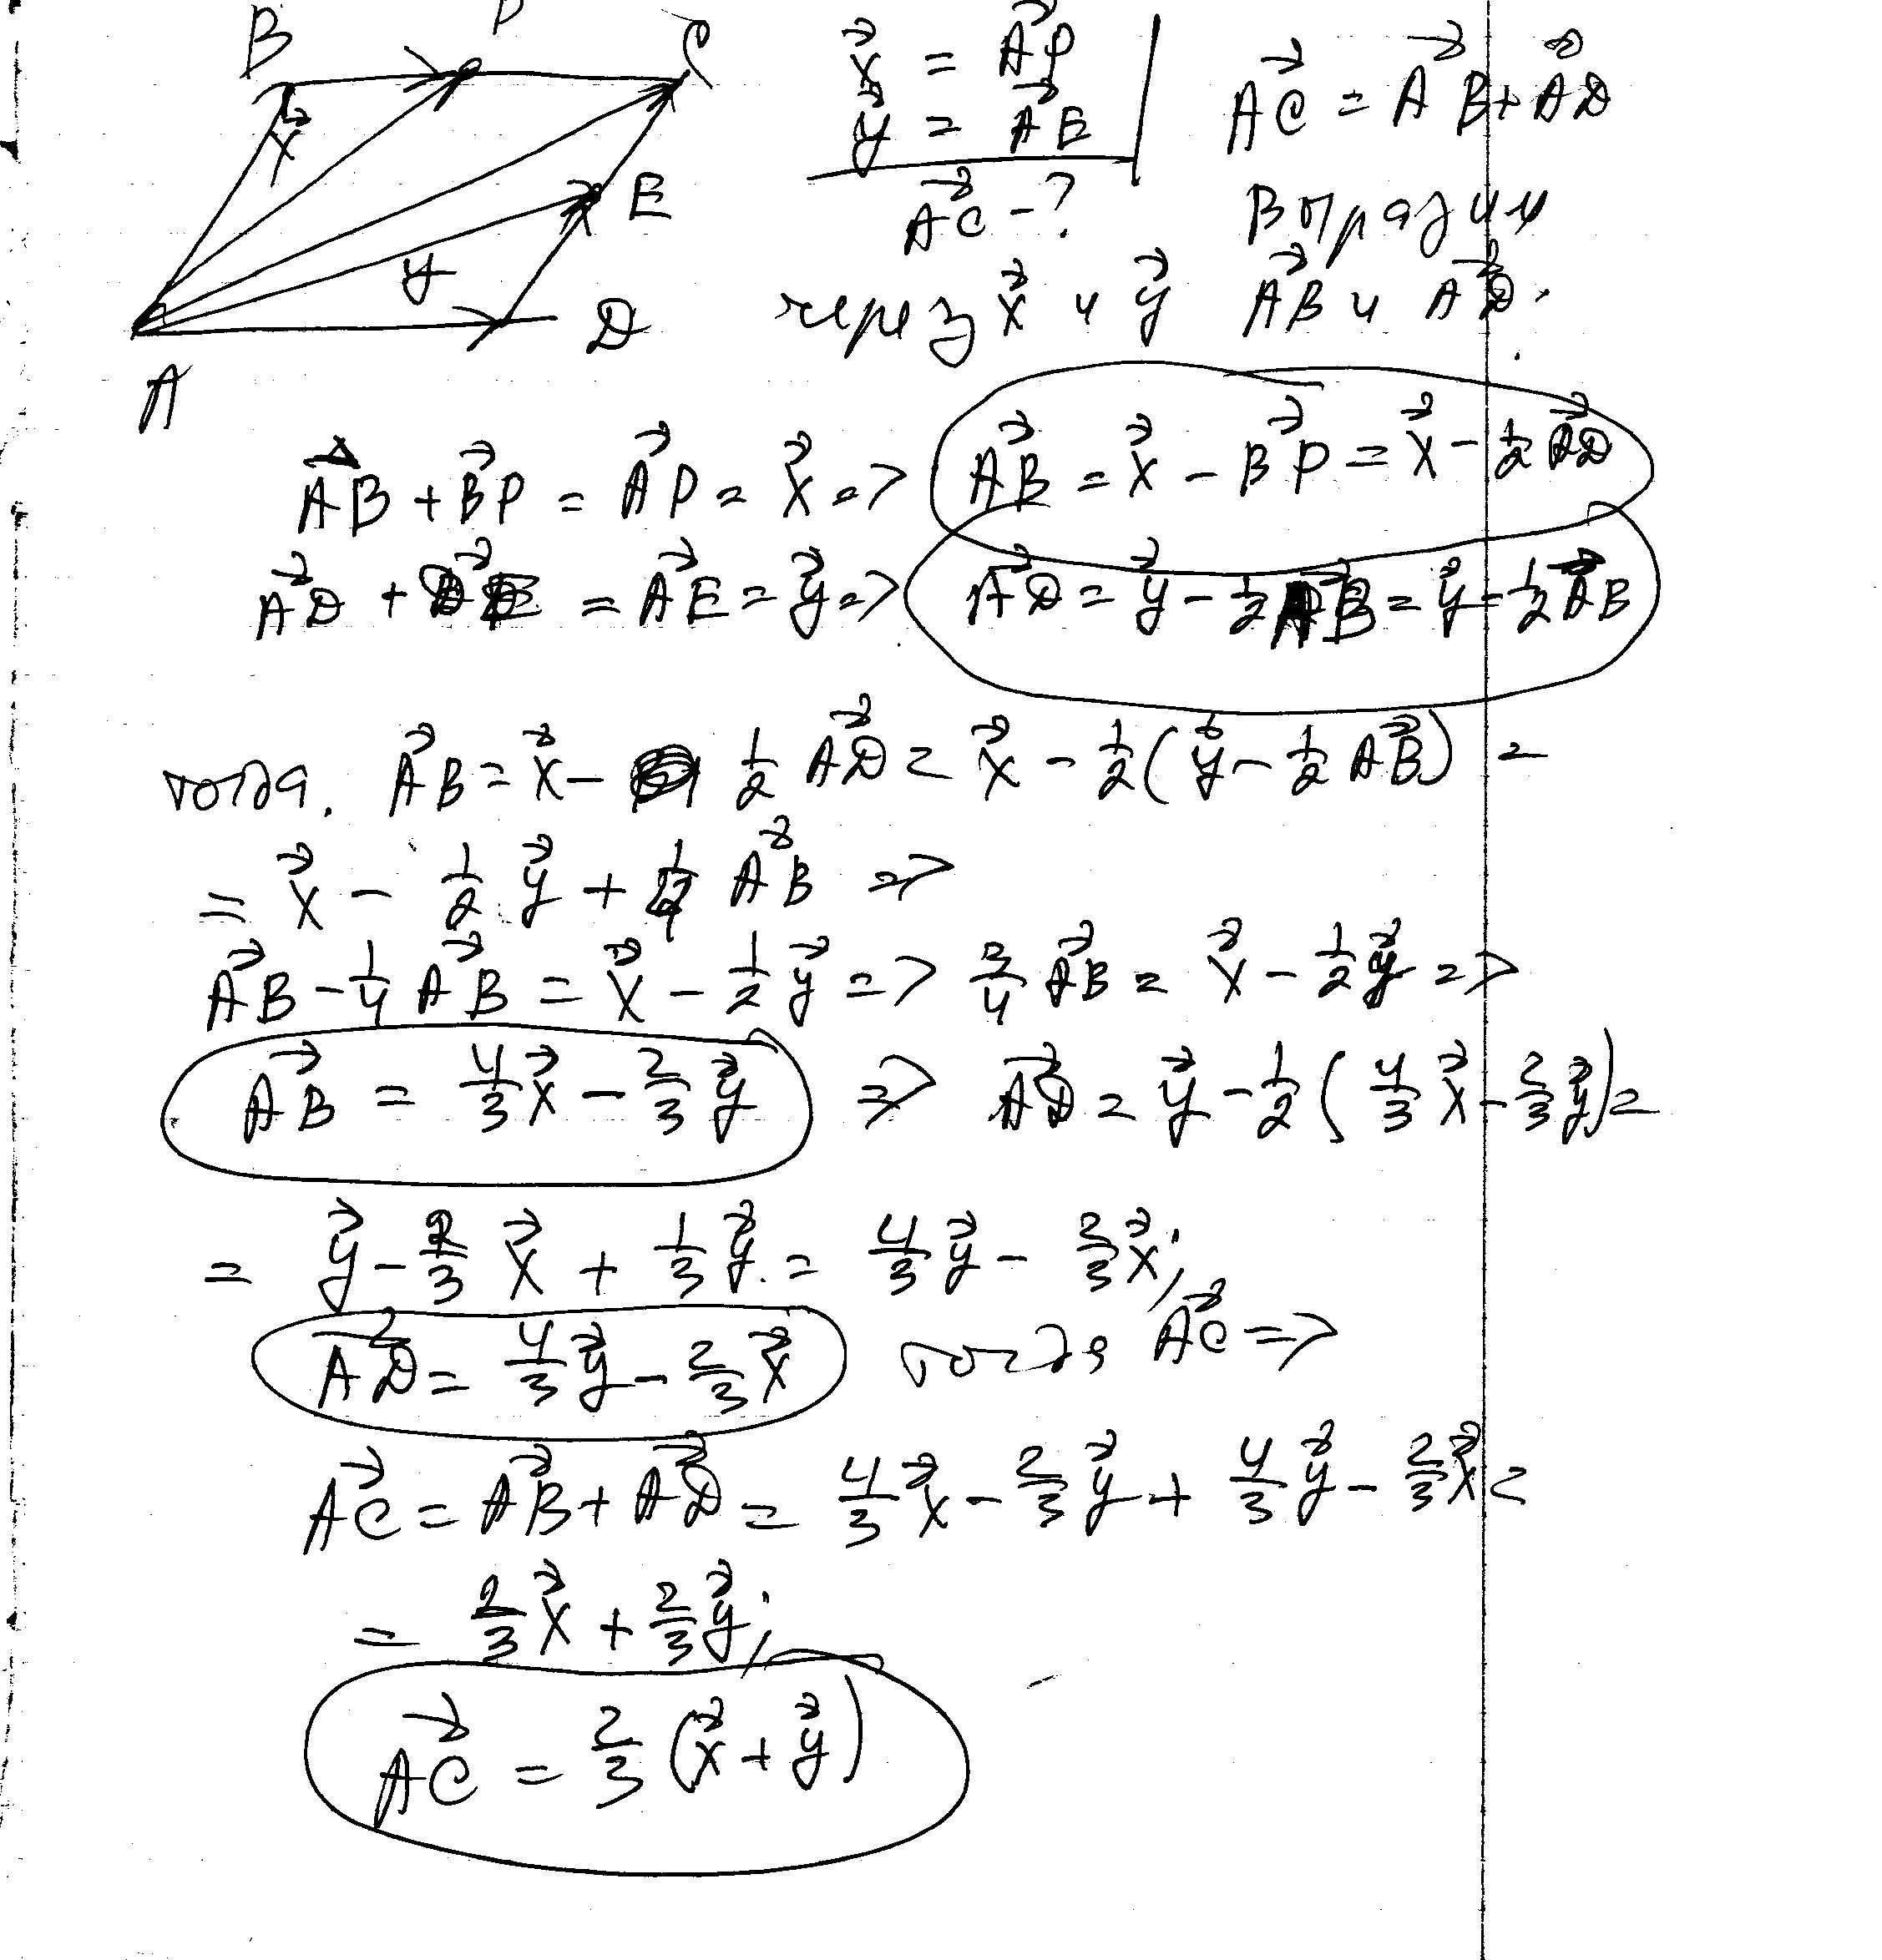 B P C
x⃗ = AP⃗
y⃗ = AE⃗
AC⃗ = AB⃗ + AD⃗
x⃗
E
AC⃗ - ?
Выразим
y
D
через x⃗ и y⃗ AB⃗ и AD⃗.
A
AB⃗ + BP⃗ = AP⃗ = x⃗ => AB⃗ = x⃗ - BP⃗ = x⃗ - 1/2 AD⃗
AD⃗ + DE⃗ = AE⃗ = y⃗ => AD⃗ = y⃗ - 1/2 AB⃗ = y⃗ - 1/2 AB⃗
тогда. AB⃗ = x⃗ - 1/2 AD⃗ = x⃗ - 1/2 (y⃗ - 1/2 AB⃗) =
= x⃗ - 1/2 y⃗ + 1/4 AB⃗ =>
AB⃗ - 1/4 AB⃗ = x⃗ - 1/2 y⃗ => 3/4 AB⃗ = x⃗ - 1/2 y⃗ =>
AB⃗ = 4/3 x⃗ - 2/3 y⃗ => AD⃗ = y⃗ - 1/2 (4/3 x⃗ - 2/3 y⃗) =
= y⃗ - 2/3 x⃗ + 1/3 y⃗ = 4/3 y⃗ - 2/3 x⃗;
AD⃗ = 4/3 y⃗ - 2/3 x⃗ тогда AC⃗ =>
AC⃗ = AB⃗ + AD⃗ = 4/3 x⃗ - 2/3 y⃗ + 4/3 y⃗ - 2/3 x⃗ =
= 2/3 x⃗ + 2/3 y⃗;
AC⃗ = 2/3 (x⃗ + y⃗)